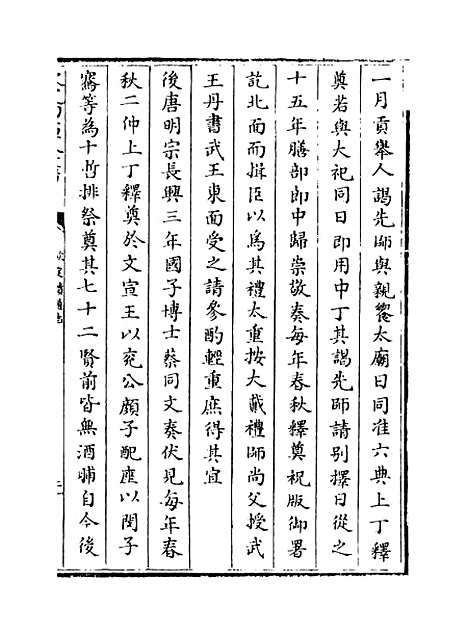 一月貢舉人謁先師與親饗太廟日同准六典上丁釋
奠若與大祀同日即用中丁其謁先師請别擇日從之
十五年膳部郎中歸崇敬奏每年春秋釋奠祝版御署
訖北面而揖臣以為其禮太重按大戴禮師尚父授武
王丹書武王東面受之請參酌輕重庶得其宜
後唐明宗長興三年國子博士蔡同文奏伏見每年春
秋二仲上丁釋奠於文宣王以兖公顔子配座以閔子
騫等為十哲排祭奠其七十二賢前皆無酒脯自今後